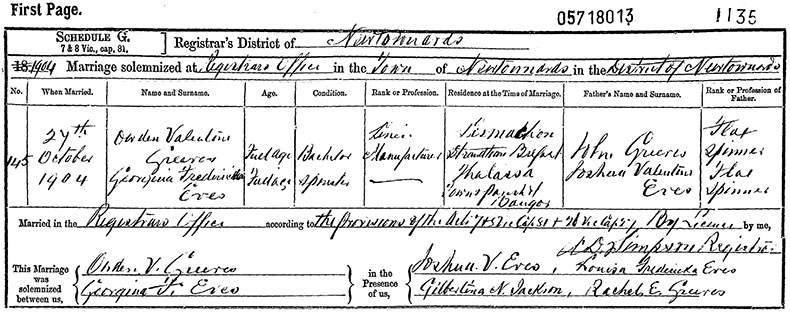 First Page. 05718013 1135
SCHEDULE G. 7 & 8 Vic., cap. 81. Registrar's District of Newtownards
18 1904 Marriage solemnized at Registrars Office in the Town of Newtownards in the District of Newtownards
No. When Married. Name and Surname. Age. Condition. Rank or Profession. Residence at the Time of Marriage. Father's Name and Surname. Rank or Profession of Father.
145 27th October 1904 Owden Valentine Greeves Full age Bachelor Linen Manufacturer Strandtown Belfast John Greeves Flax Spinner
Georgina Fredericka Eves Full age Spinster — Thalassa Bangor Joshua Valentine Eves Flax Spinner
Married in the Registrars Office according to the provisions of the Acts By License by me,
Simpson Registrar
This Marriage was solemnized between us, Owden V. Greeves
Georgina F. Eves
in the Presence of us, Joshua V. Eves, Louisa Fredericka Eves
Gilbertina N. Jackson, Rachel E. Greeves